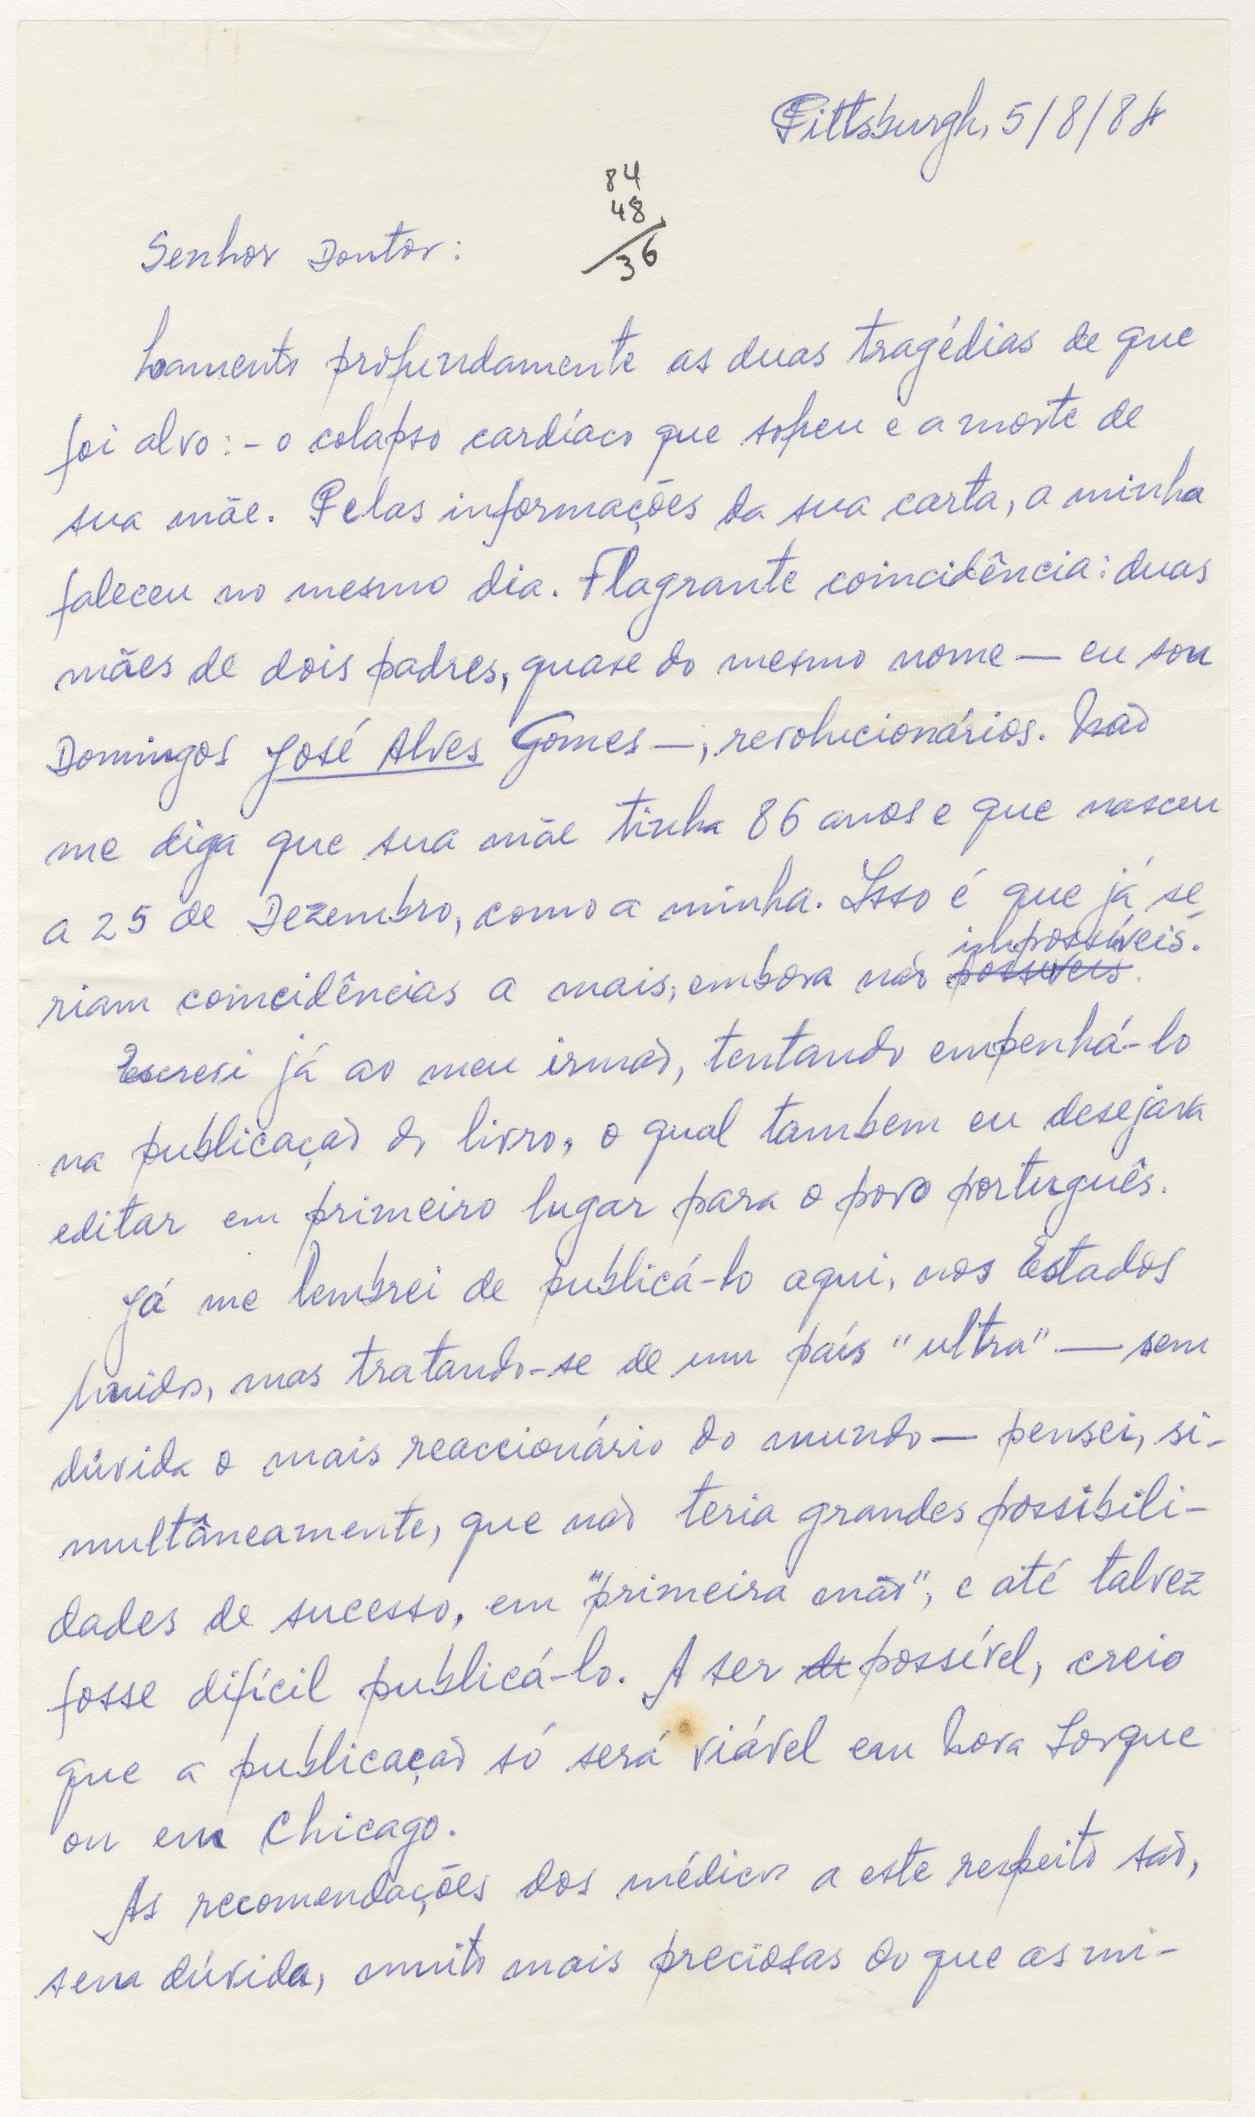 Pittsburgh, 5/8/84
84
48
36
Senhor Doutor:
Lamento profundamente as duas tragédias de que
foi alvo: - o colapso cardíaco que sofreu e a morte de
sua mãe. Pelas informações da sua carta, a minha
faleceu no mesmo dia. Flagrante coincidência: duas
mães de dois padres, quase do mesmo nome — eu sou
Domingos José Alves Gomes —, revolucionários. Não
me diga que sua mãe tinha 86 anos e que nasceu
a 25 de Dezembro, como a minha. Isso é que já se-
impossíveis.
riam coincidências a mais, embora não possíveis.
Escrevi já ao meu irmão, tentando empenhá-lo
na publicação do livro, o qual tambem eu desejava
editar em primeiro lugar para o povo português.
Já me lembrei de publicá-lo aqui, nos Estados
Unidos, mas tratando-se de um país "ultra" — sem
dúvida o mais reaccionário do mundo — pensei, si-
multâneamente, que não teria grandes possibili-
dades de sucesso, em "primeira mão", e até talvez
fosse difícil publicá-lo. A ser de possível, creio
que a publicação só será viável em Nova Iorque
ou em Chicago.
As recomendações dos médicos a este respeito são,
sem dúvida, muito mais preciosas do que as mi-